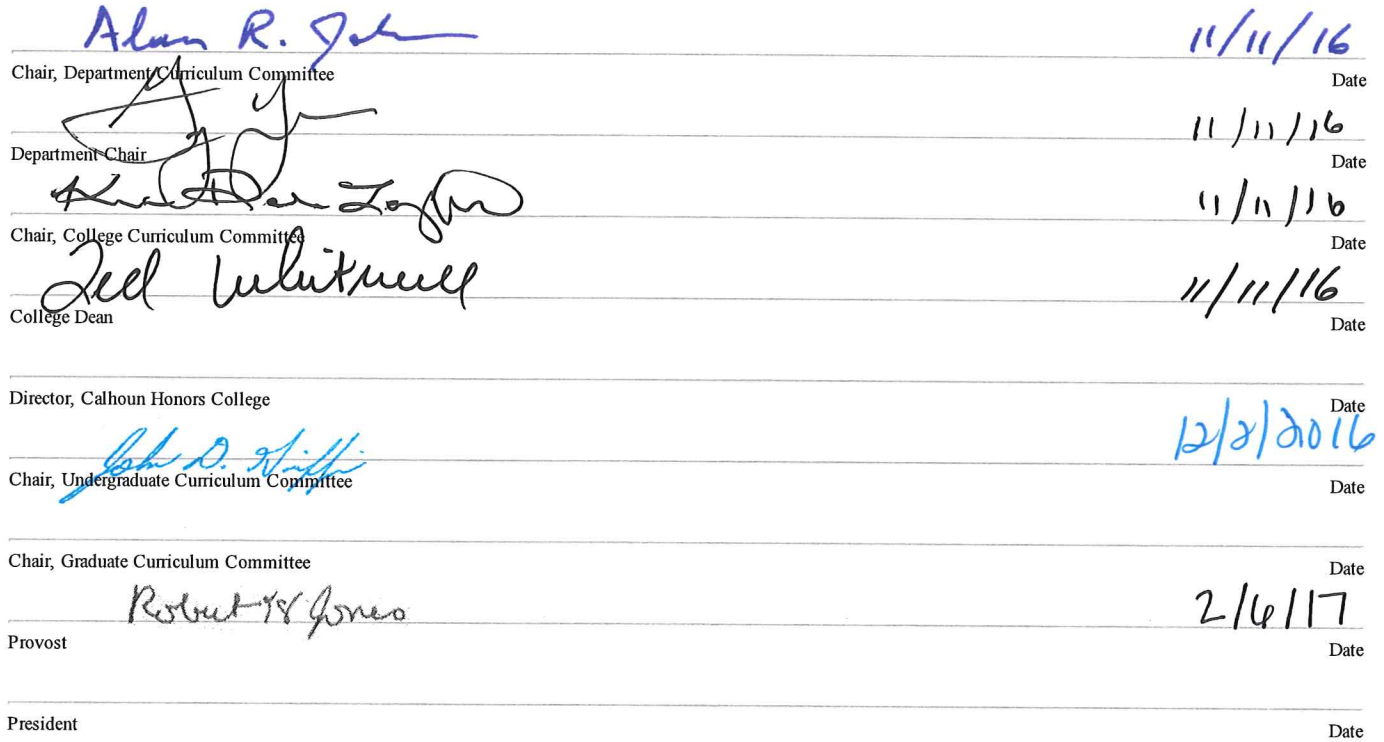 Alan R. Joh 11/11/16
Chair, Department Curriculum Committee Date
11/11/16
Department Chair Date
11/11/16
Chair, College Curriculum Committee Date
Ted Whitwell 11/11/16
College Dean Date
Director, Calhoun Honors College Date
John D. Griffi 12/2/2016
Chair, Undergraduate Curriculum Committee Date
Chair, Graduate Curriculum Committee Date
Robert Jones 2/6/17
Provost Date
President Date